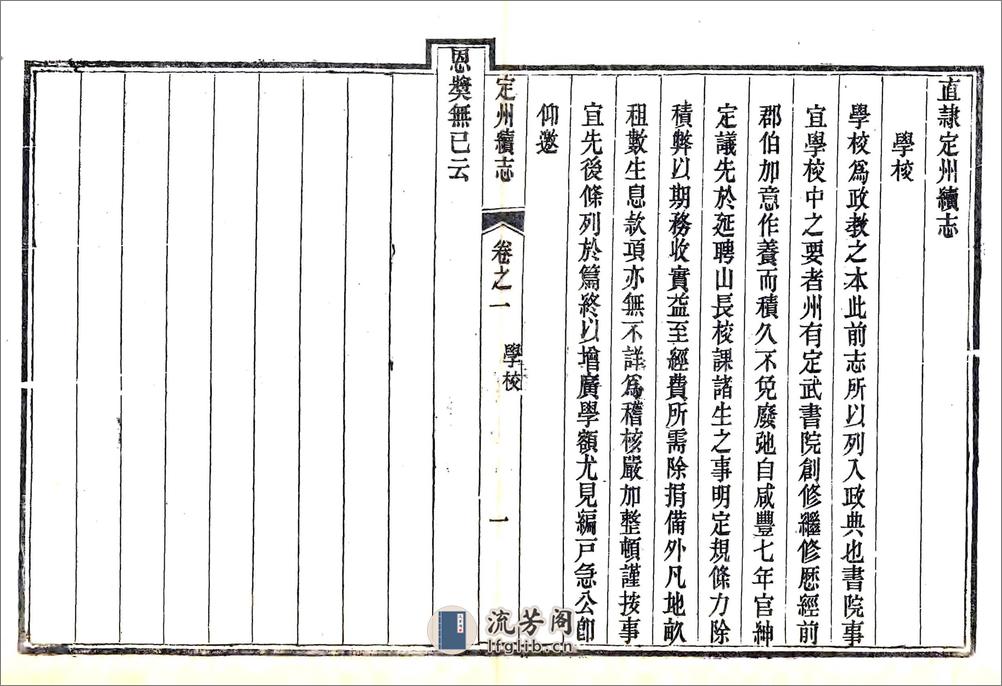 直隸定州續志
學校
學校爲政教之本此前志所以列入政典也書院事
宜學校中之要者州有定武書院創修繼修歷經前
郡伯加意作養而積久不免廢弛自咸豐七年官紳
定議先於延聘山長校課諸生之事明定規條力除
積弊以期務收實益至經費所需除捐備外凡地畝
租數生息款項亦無不詳爲稽核嚴加整頓謹按事
宜先後條列於篇終以增廣學額尤見編戸急公卽
仰邀
定州續志
卷之一
學校
一
恩獎無已云
流芳阁
lfglib.cn